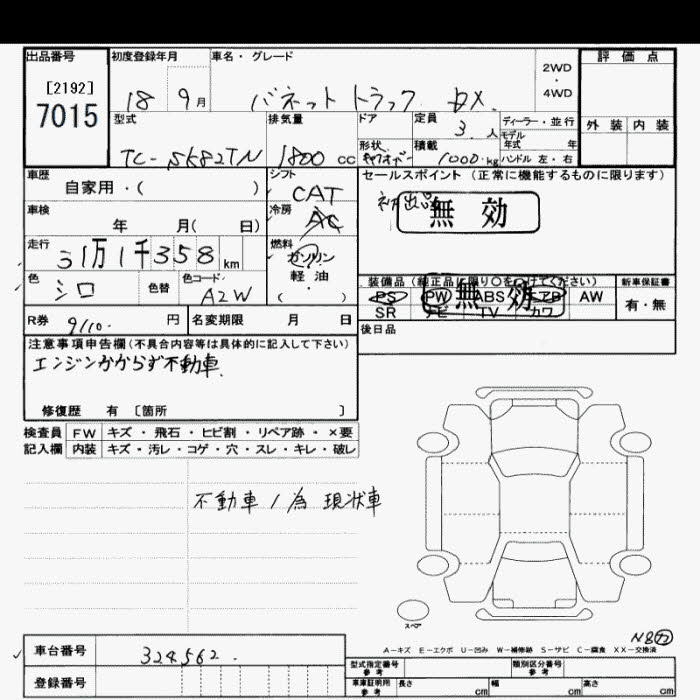 出品番号 初度登録年月 車名・グレード 評価点
[2192]
7015
18 9月 バネット トラック DX 2WD ・ 4WD
型式 排気量 ドア 定員 ディーラー・並行 外装 内装
3人 モデル年式 年
TC-SK82TN 1800cc 形状 積載 1000kg ハンドル 左・右
車歴 シフト セールスポイント (正常に機能するものに限ります)
自家用・( ) CAT
無効
車検 冷房
年 月( 日) AC
走行 燃料
31万1千358km ガソリン
軽・油
( ・ )
装備品 (純正品に限り○を付けてください) 新車保証書
色 シロ 色替 色コード A2W
PS PW ABS エアB AW 有・無
無効
SR ナビ TV カワ
R券 9110. 円 名変期限 月 日
後日品
注意事項申告欄(不具合内容等は具体的に記入して下さい)
エンジンかからず不動車
修復歴 有 〔箇所 〕
検査員 FW キズ・飛石・ヒビ割・リペア跡・×要
記入欄 内装 キズ・汚レ・コゲ・穴・スレ・キレ・破レ
不動車ノ為 現状車
スペア
A-キズ E-エクボ U-凹み W-補修跡 S-サビ C-腐食 XX-交換済
車台番号 324562
型式指定番号 参考 類別区分番号 参考
登録番号
車庫証明用 参考 長さ cm 幅 cm 高さ cm